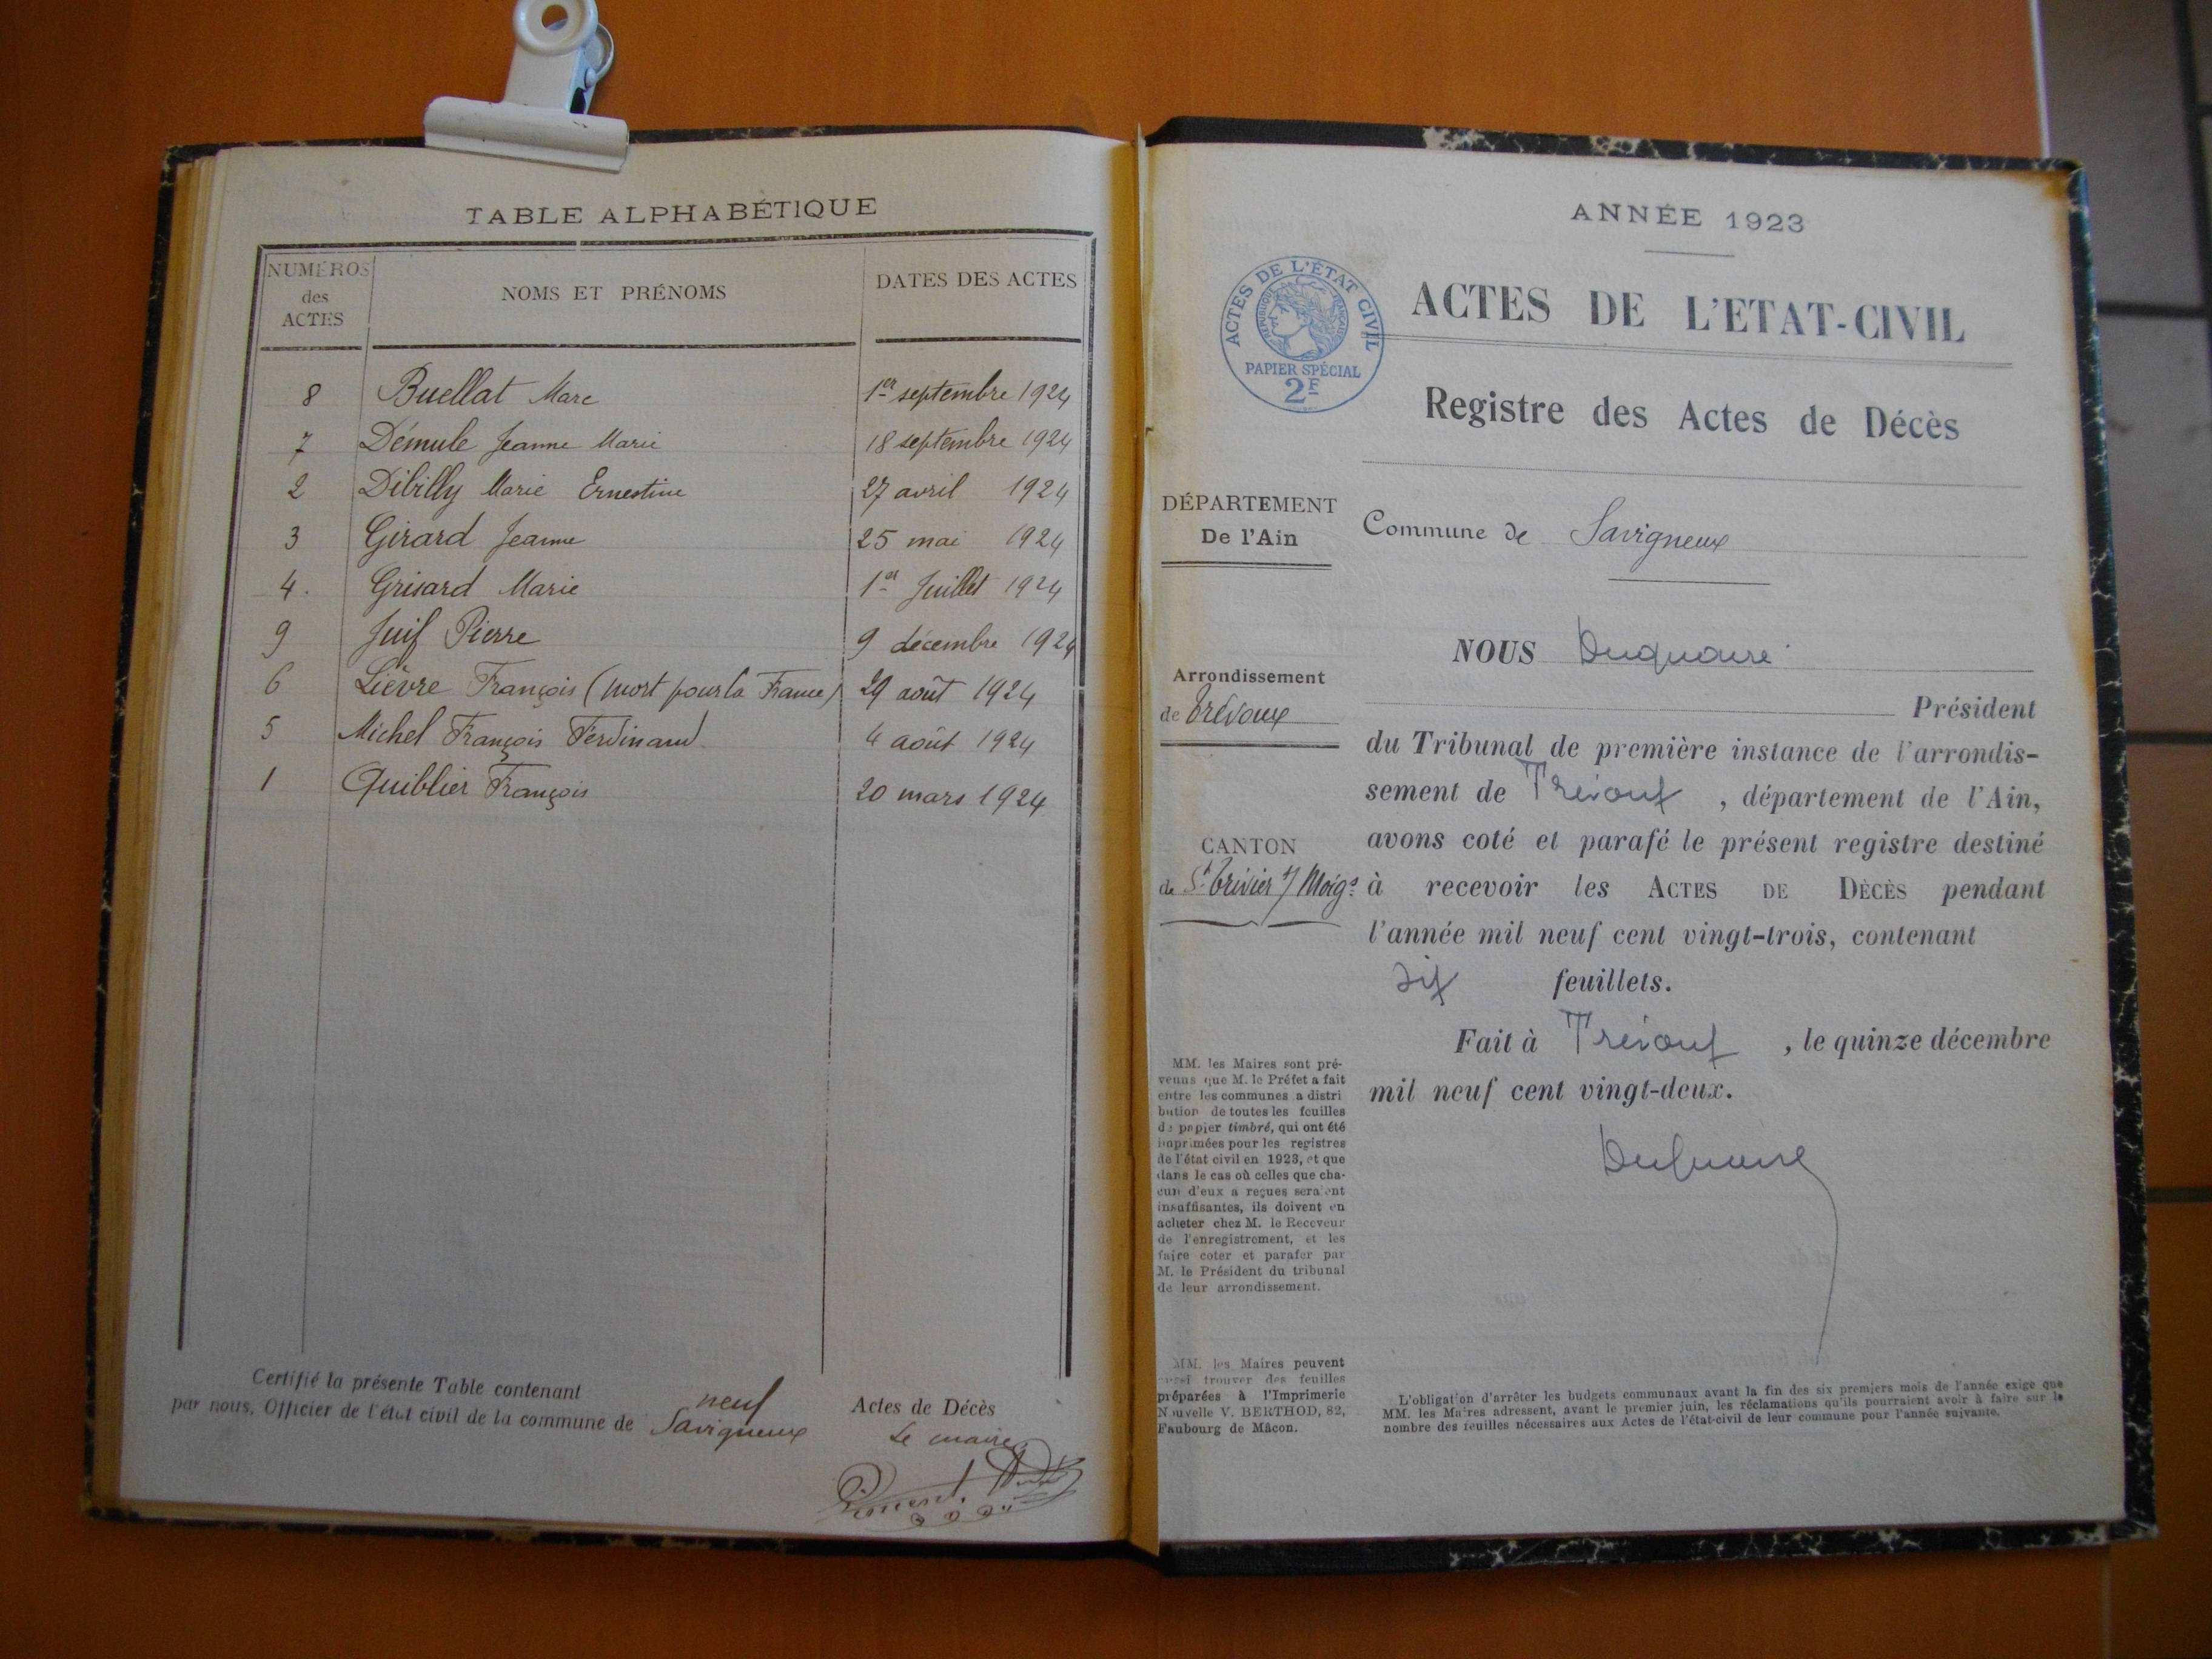 TABLE ALPHABÉTIQUE
NUMÉROS des ACTES NOMS ET PRÉNOMS DATES DES ACTES
8 Buellat Marc 1er septembre 1924
7 Démule Jeanne Marie 18 septembre 1924
2 Dibilly Marie Ernestine 27 avril 1924
3 Girard Jeanne 25 mai 1924
4. Grisard Marie 1er Juillet 1924
9 Juif Pierre 9 décembre 1924
6 Lièvre François (mort pour la France) 29 août 1924
5 Michel François Ferdinand 4 août 1924
1 Quiblier François 20 mars 1924
Certifié la présente Table contenant neuf Actes de Décès
par nous, Officier de l'état civil de la commune de Savigneux
Le maire
ANNÉE 1923
ACTES DE L'ÉTAT CIVIL
RÉPUBLIQUE FRANÇAISE
PAPIER SPÉCIAL
2F
ACTES DE L'ETAT-CIVIL
Registre des Actes de Décès
DÉPARTEMENT
De l'Ain
Commune de Savigneux
Arrondissement
de Trévoux
CANTON
de St Trivier s/ Moigs
NOUS Duquaire
Président
du Tribunal de première instance de l'arrondis-
sement de Trévoux, département de l'Ain,
avons coté et parafé le présent registre destiné
à recevoir les ACTES DE DÉCÈS pendant
l'année mil neuf cent vingt-trois, contenant
six feuillets.
Fait à Trévoux, le quinze décembre
mil neuf cent vingt-deux.
Duquaire
MM. les Maires sont pré-
venus que M. le Préfet a fait
entre les communes a distri
bution de toutes les feuilles
de papier timbré, qui ont été
imprimées pour les registres
de l'état civil en 1923, et que
dans le cas où celles que cha-
cun d'eux a reçues seraient
insuffisantes, ils doivent en
acheter chez M. le Receveur
de l'enregistrement, et les
faire coter et parafer par
M. le Président du tribunal
de leur arrondissement.
MM. les Maires peuvent
aussi trouver des feuilles
préparées à l'Imprimerie
Nouvelle V. BERTHOD, 82,
Faubourg de Mâcon.
L'obligation d'arrêter les budgets communaux avant la fin des six premiers mois de l'année exige que
MM. les Maires adressent, avant le premier juin, les réclamations qu'ils pourraient avoir à faire sur le
nombre des feuilles nécessaires aux Actes de l'état-civil de leur commune pour l'année suivante.